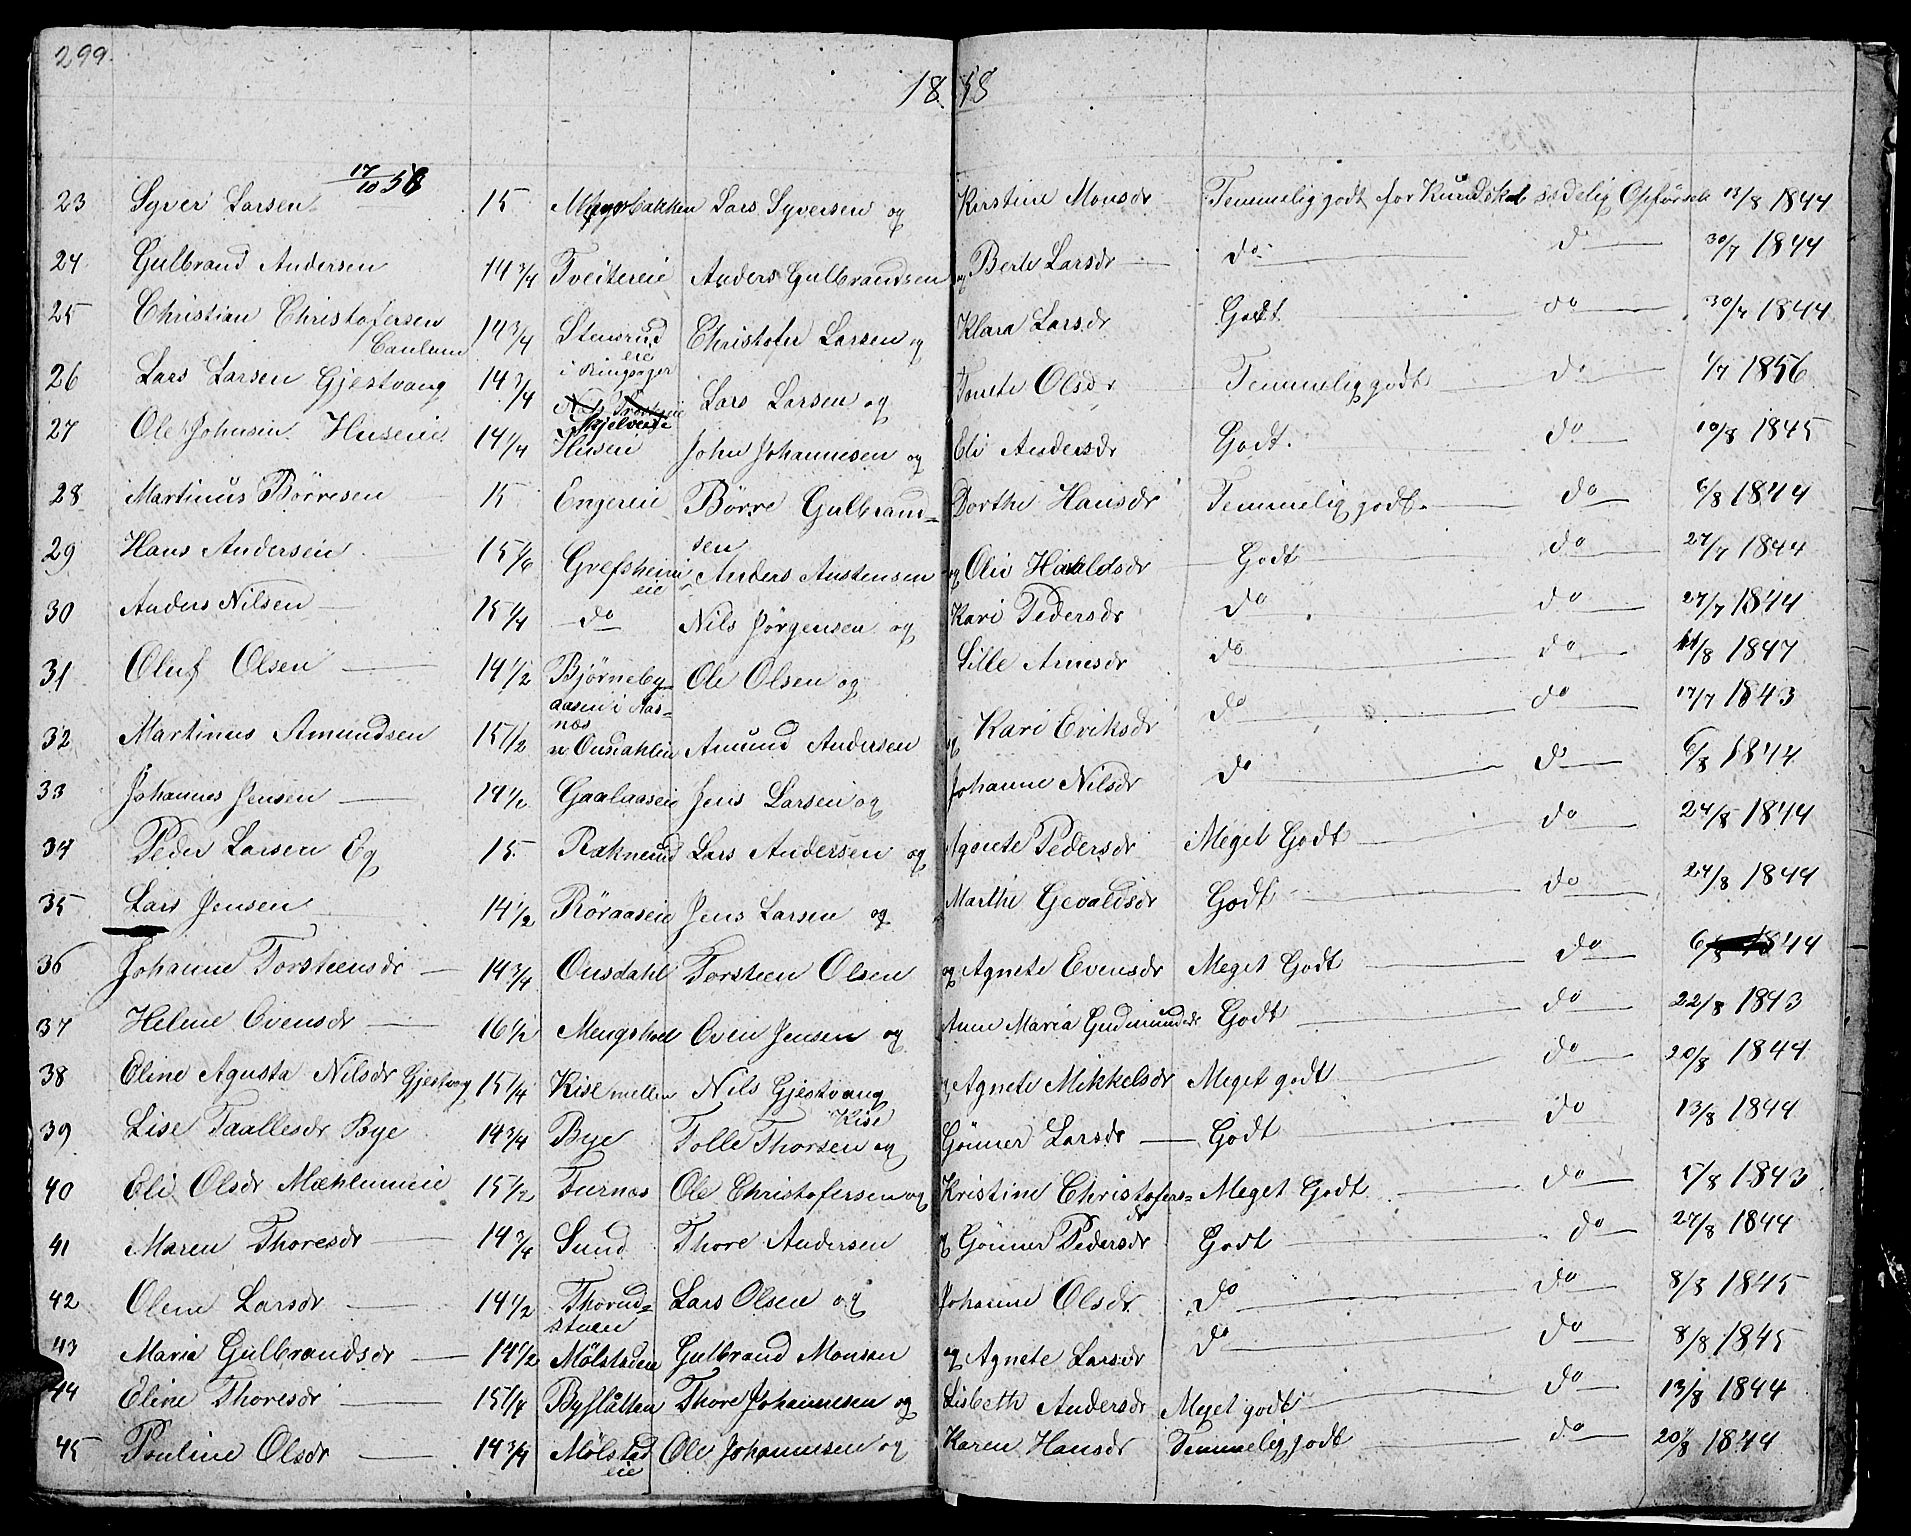 299.
18 58
17/10 58
23 Syver Larsen 15 Lars Syversen og Kirstine Monsdr Temmelig godt for Kundskab sædelig Opførsel 13/8 1844
24 Gulbrand Andersen 14 3/4 Tveitereie Anders Gulbrandsen og Berte Larsdr do do 30/7 1844
25 Christian Christofersen 14 3/4 Stensrud Christofer Larsen og Klara Larsdr Godt do 30/7 1844
eie
26 Lars Larsen Gjestvang 14 3/4 i Ringsager Lars Larsen og Tonette Olsdr Temmelig godt do 1/7 1856
27 Ole Johnsen Huseie 14 1/4 Huseie John Johannesen og Eli Andersdr Godt. do 10/8 1845
28 Martinus Börresen 15 Engereie Börre Gulbrand= Dorthe Hansdr Temmelig godt. do 6/8 1844
sen
29 Hans Andersen 15 1/6 Grefsheim Anders Austensen og Oliv Haraldsdr Godt do 27/7 1844
eie
30 Anders Nilsen 15 1/4 do Nils Jörgensen og Kari Pedersdr do do 27/7 1844
31 Oluf Olsen 14 1/2 Bjørneby Ole Olsen og Lille Arnesdr do do /8 1847
aasen i Aas=
nes
32 Martinus Amundsen 15 1/2 Onsdahlen Amund Andersen og Kari Eriksdr do do 17/7 1843
33 Johannes Jensen 14 1/2 Gaalaaseie Jens Larsen og Johanne Nilsdr do do 6/8 1844
34 Peder Larsen Eg 15 Lars Andersen og Agnete Pedersdr Meget Godt do 24/8 1844
35 Lars Jensen 14 1/2 Röraaseie Jens Larsen og Marthe Gevaldsdr Godt do 24/8 1844
36 Johanne Torsteensdr 14 3/4 Onsdahl Torsteen Olsen og Agnete Evensdr Meget Godt do 6/8 1844
37 Helene Ovensdr 16 1/2 Mengshoel Oven Jensen og Anne Maria Gudmundsdr Godt do 22/8 1843
38 Eline Agusta Nilsdr Gjestvang 15 1/4 Kise mellem Nils Gjestvang og Agnete Mikkelsdr Meget godt do 20/8 1844
Kise
39 Lise Taallesdr Bye 14 3/4 Bye Tolle Thorsen og Gönner Larsdr Godt do 13/8 1844
40 Eli Olsdr Mæhlumeie 15 1/2 Furnes Ole Christofersen og Kristine Christofers= Meget Godt do 5/8 1843
dr
41 Maren Thoresdr 14 3/4 Sund Thore Andersen og Gönner Pedersdr Godt do 27/8 1844
42 Olene Larsdr 14 1/2 Thorud= Lars Olsen og Johanne Olsdr do do 8/8 1845
stuen
43 Maria Gulbrandsdr 14 1/2 Mølstaden Gulbrand Monsen og Agnete Larsdr do do 8/8 1845
44 Eline Thoresdr 15 1/4 Byflåtten Thore Johannesen og Lisbeth Andersdr Meget godt do 13/8 1844
45 Pouline Olsdr 14 3/4 Mølstad Ole Johannesen og Karen Hansdr Temmelig godt do 20/8 1844
eie